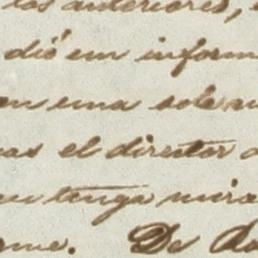 los anteriores,
dió un inform
en una solemn
as el director
en tenga mira
me. De